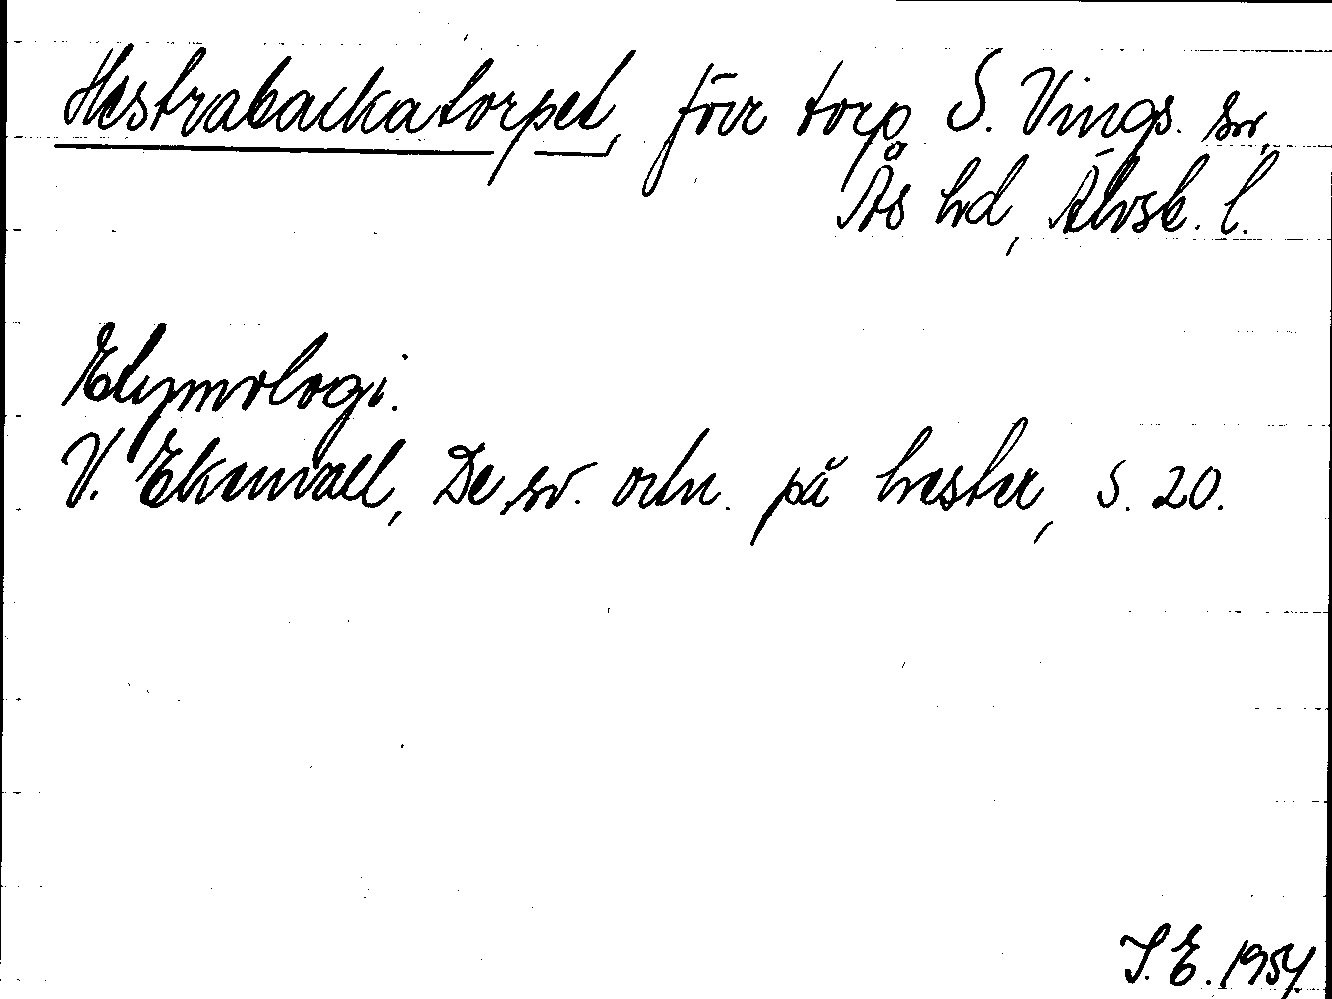 Hestrabackatorpet, förr torp S. Vings. sn,
Ås hd, Älvsb. l.
Etymologi.
V. Ekenvall, De sv. ortn. på hester, s. 20.
1954.